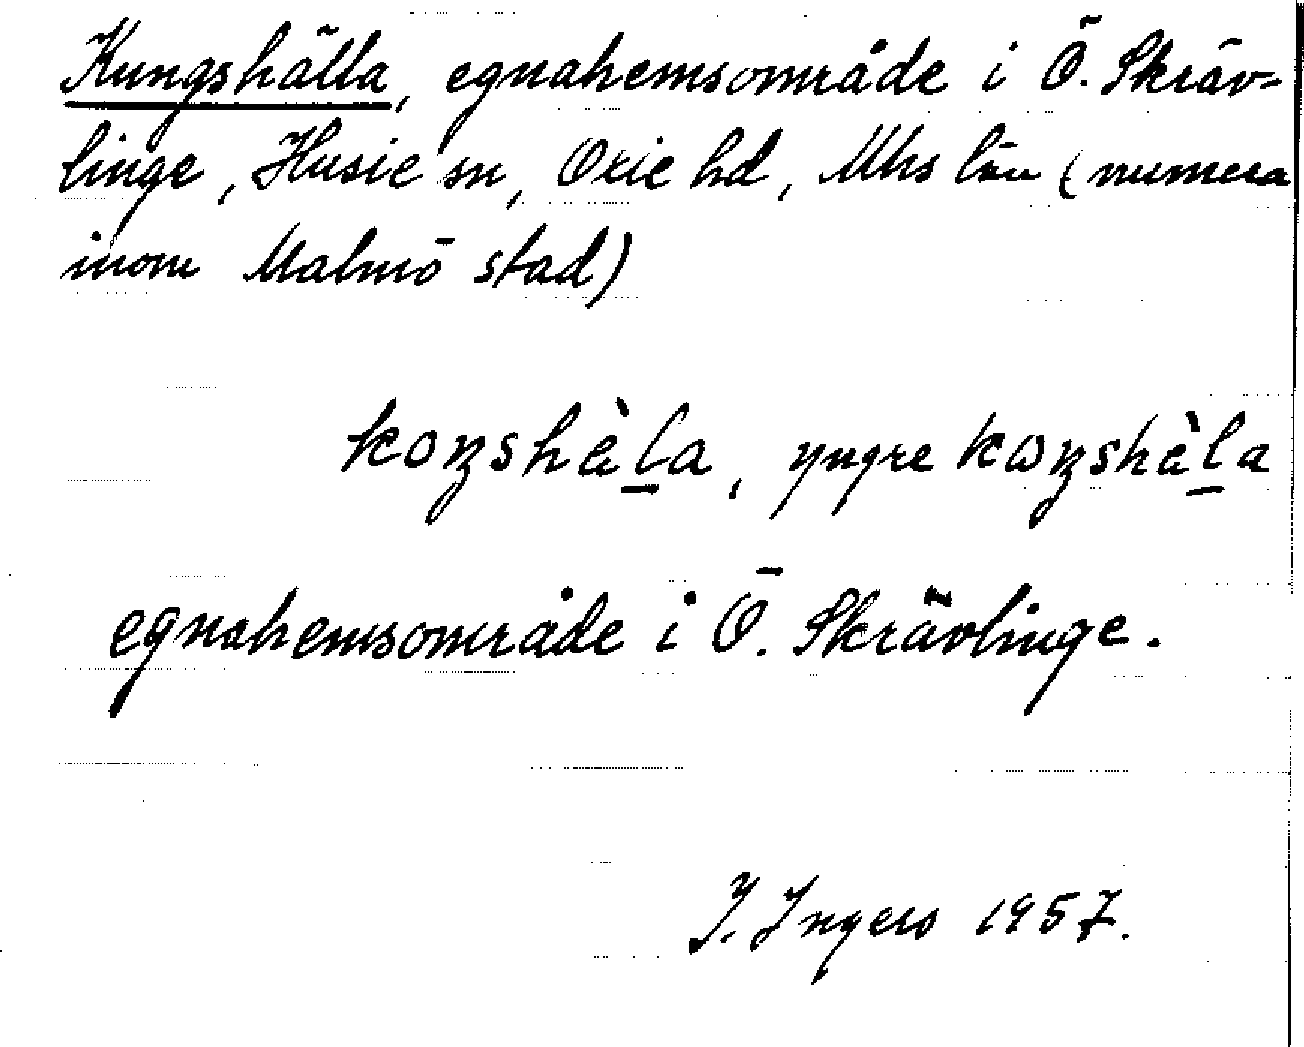 Kungshälla, egnahemsområde i Ö. Skräv-
linge, Husie sn, Oxie hd, Mhs län (numera
inom Malmö stad)
koŋshὲla, yngre kωŋshὲla
egnahemsområde i Ö. Skrävlinge.
I. Ingers 1957.